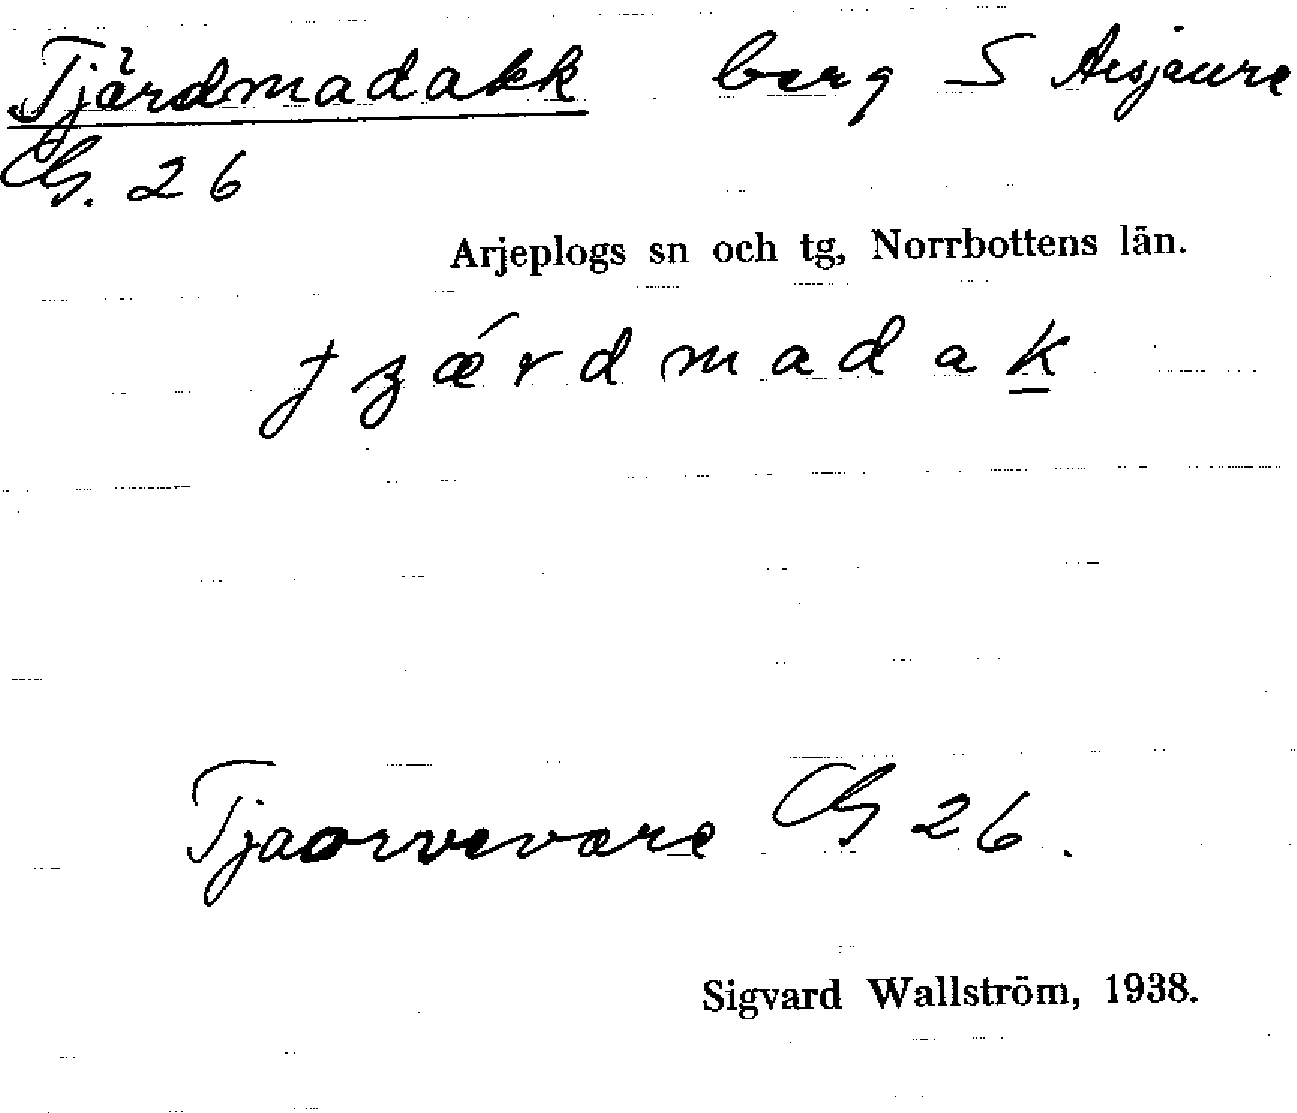 Tjärdmadakk berg S Arsjaure
Gs. 26
Arjeplogs sn och tg, Norrbottens län.
tʒǽrdmadak̲
Tjaorvevare Gs 26.
Sigvard Wallström, 1938.